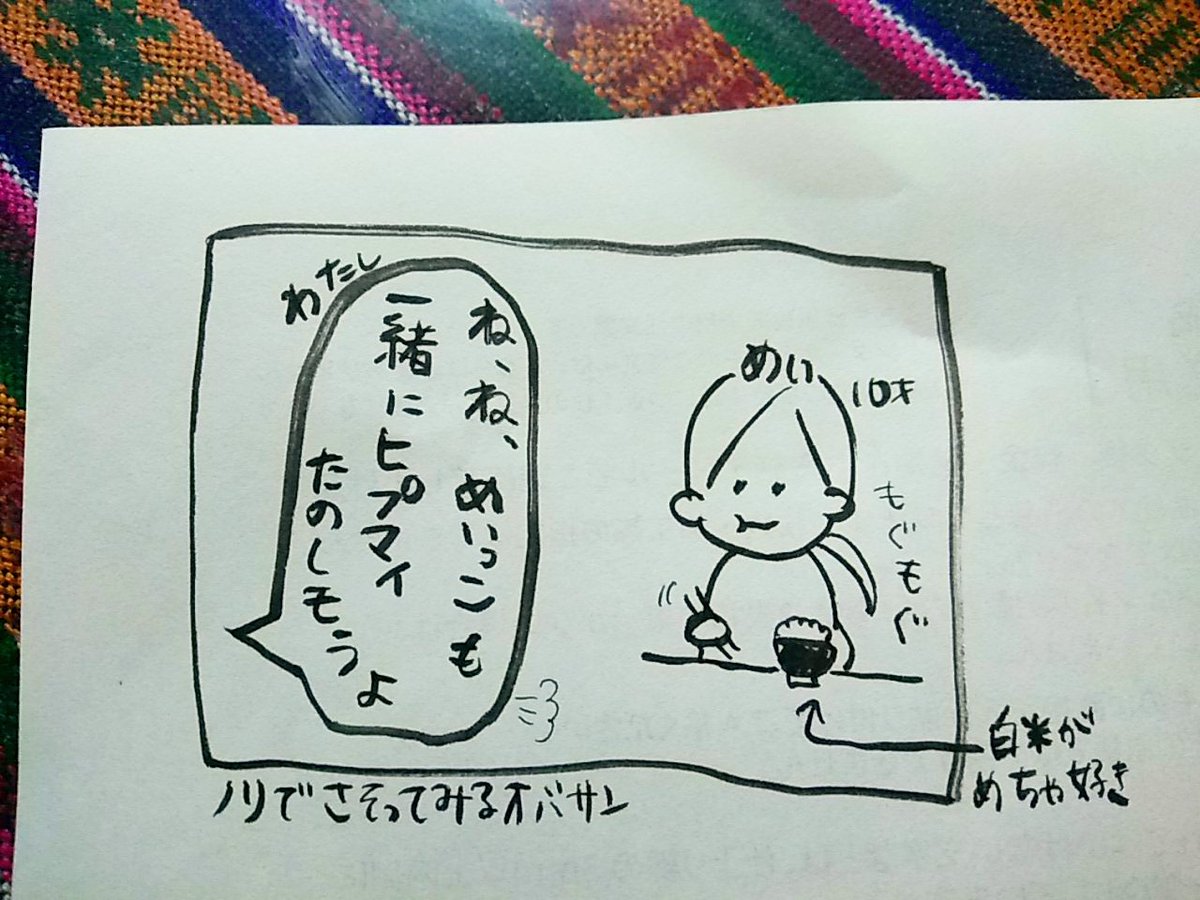 めい
10才
もぐもぐ
白米が
めちゃ好き
わたし
ね、ね、めいっこも
一緒にヒプマイ
たのしもうよ
ノリでさそってみるオバサン